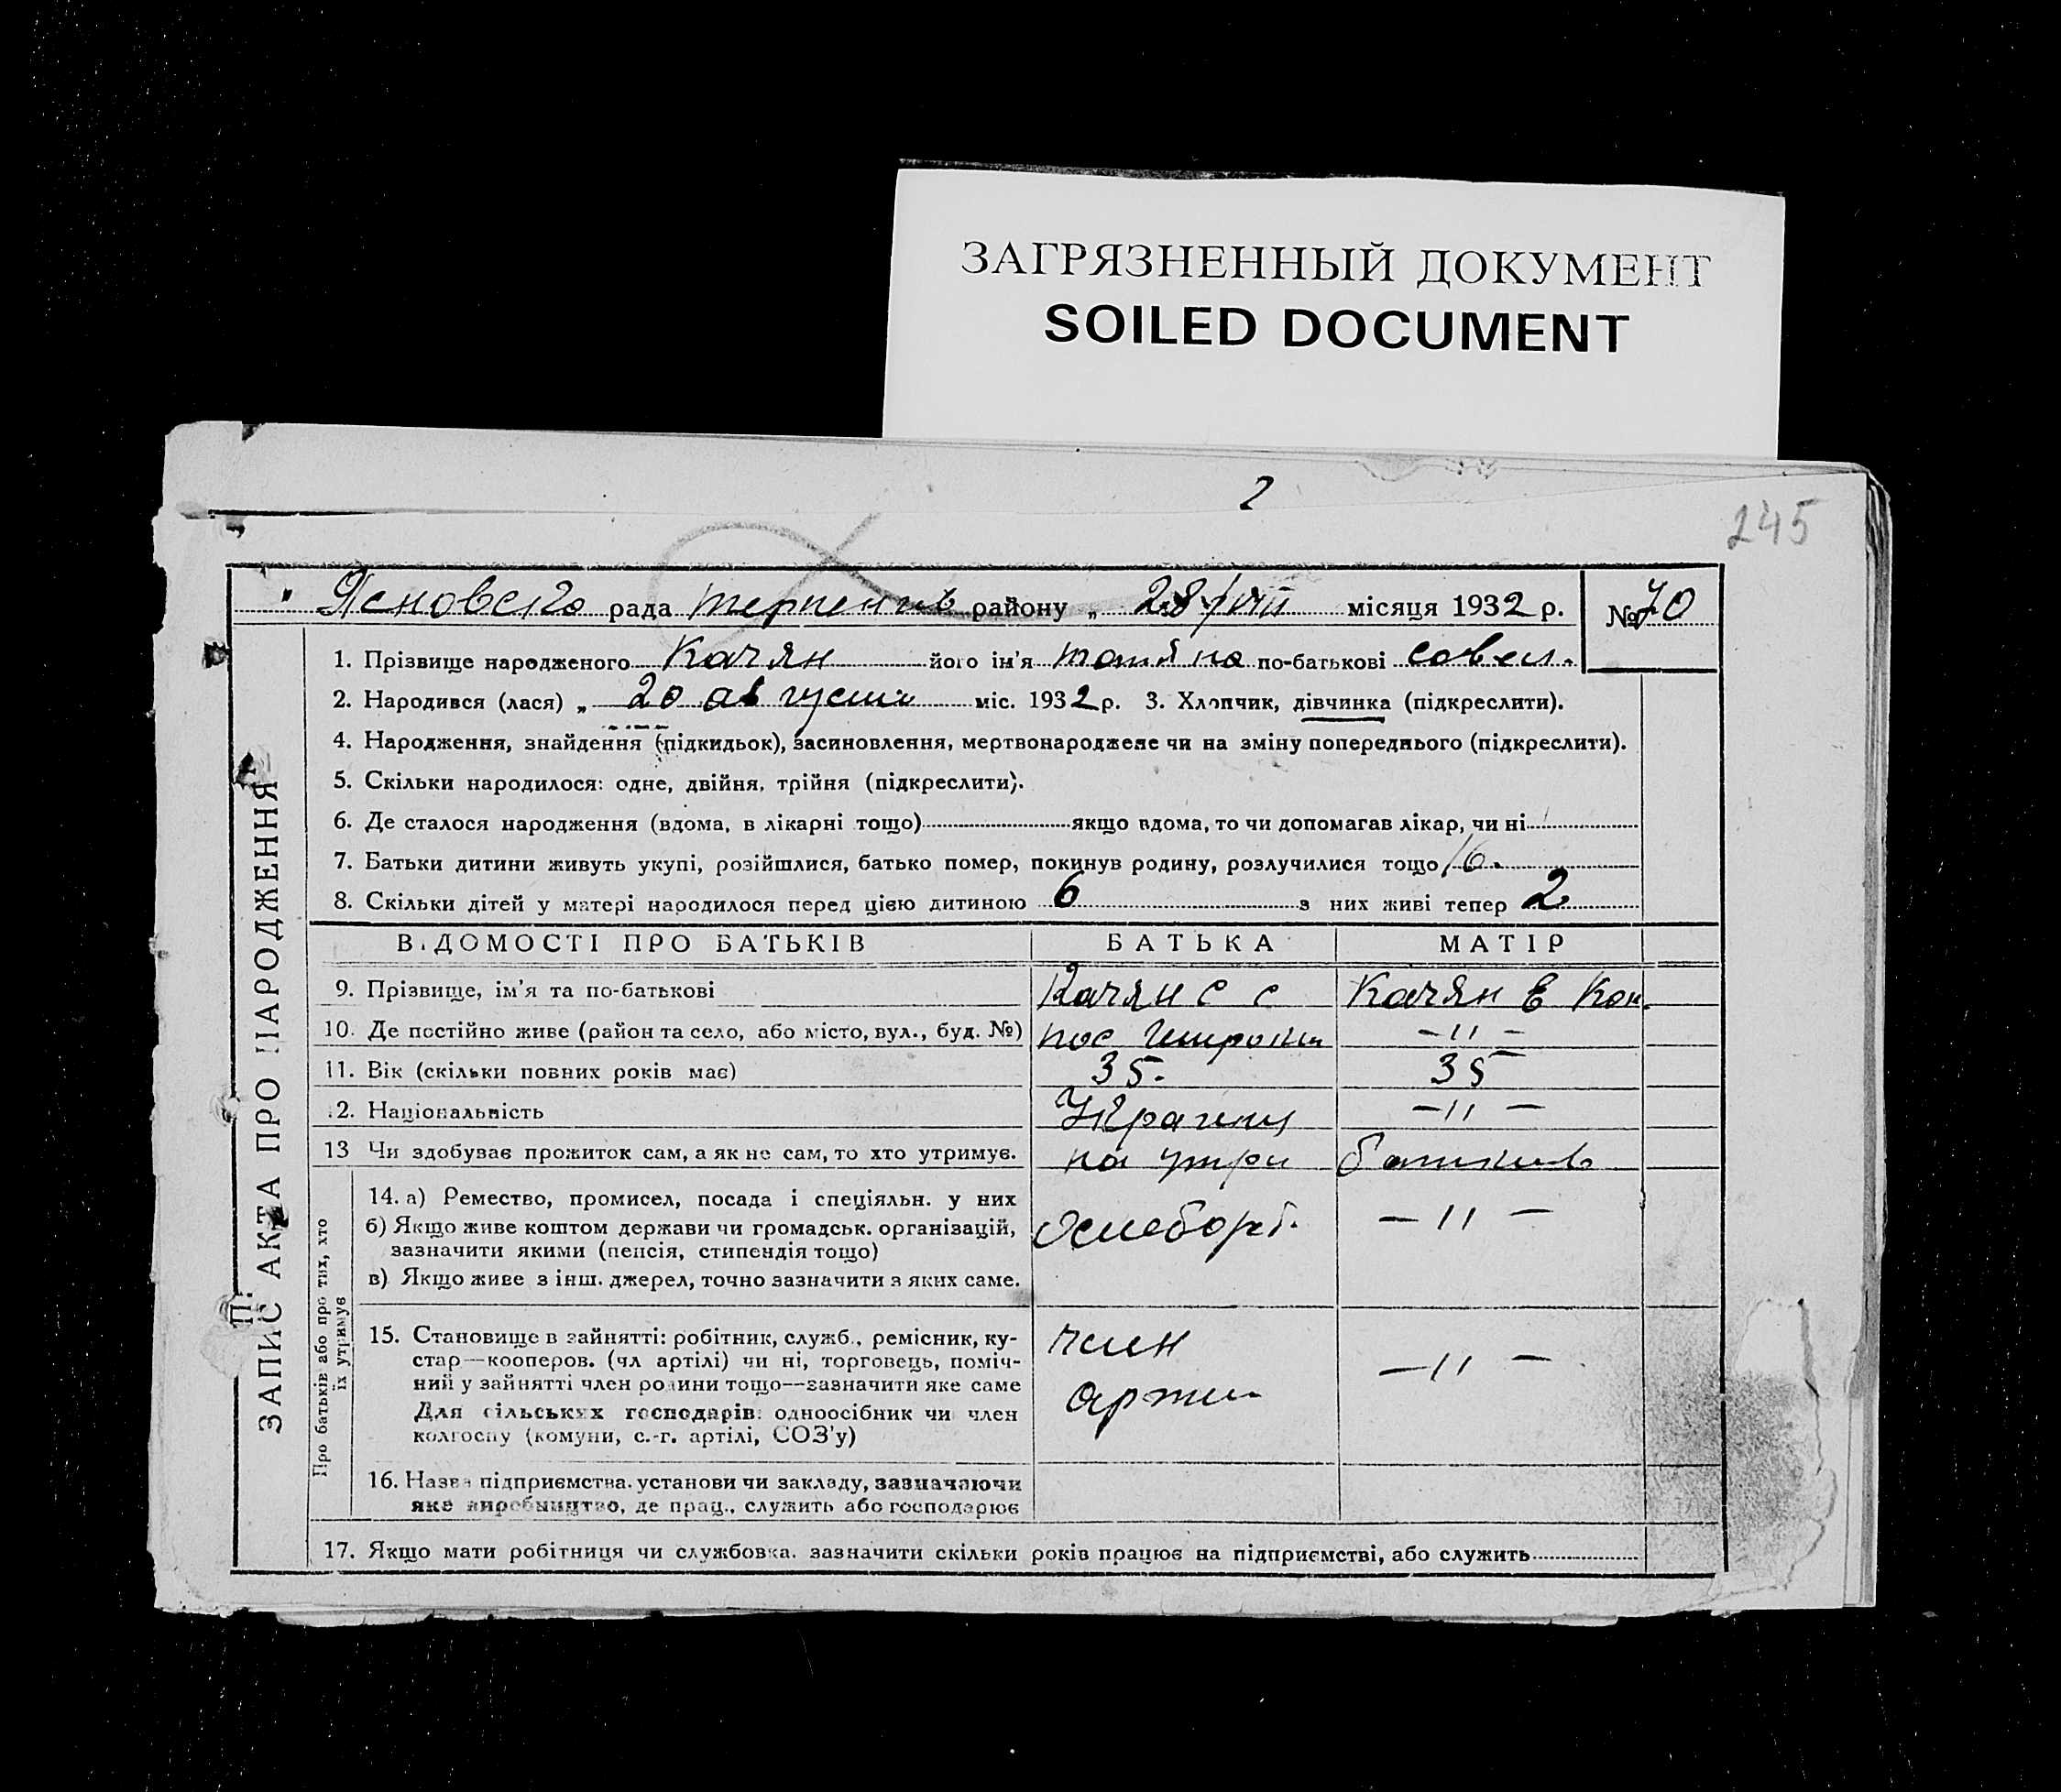 ЗАГРЯЗНЕННЫЙ ДОКУМЕНТ
SOILED DOCUMENT
2
245
рада району „ 28/VIII місяця 1932 р. № 70
1. Прізвище народженого Качян його ім'я по-батькові савел.
2. Народився (лася) „ 20 августа міс. 1932 р. 3. Хлопчик, дівчинка (підкреслити).
4. Народження, знайдення (підкидьок), засиновлення, мертвонароджене чи на зміну попереднього (підкреслити).
5. Скільки народилося: одне, двійня, трійня (підкреслити).
6. Де сталося народження (вдома, в лікарні тощо) якщо вдома, то чи допомагав лікар, чи ні
7. Батьки дитини живуть укупі, розійшлися, батько помер, покинув родину, розлучилися тощо
8. Скільки дітей у матері народилося перед цією дитиною 6 з них живі тепер 2
ВІДОМОСТІ ПРО БАТЬКІВ БАТЬКА МАТІР
9. Прізвище, ім'я та по-батькові Качян С С Качян Е Кон.
10. Де постійно живе (район та село, або місто, вул., буд. №) пос — " —
11. Вік (скільки повних років має) 35. 35
12. Національність — " —
13 Чи здобуває прожиток сам, а як не сам, то хто утримує. на утри
14. а) Ремество, промисел, посада і спеціяльн. у них
б) Якщо живе коштом держави чи громадськ. організацій,
зазначити якими (пенсія, стипендія тощо) — " —
в) Якщо живе з інш. джерел, точно зазначити з яких саме.
15. Становище в зайнятті: робітник, служб., ремісник, ку-
стар—кооперов. (чл артілі) чи ні, торговець, поміч-
ний у зайнятті член родини тощо—зазначити яке саме
Для сільських господарів: одноосібник чи член
колгоспу (комуни, с.-г. артілі, СОЗ'у)
член
— " —
16. Назва підприємства. установи чи закладу, зазначаючи
яке виробництво, де прац., служить або господарює
17. Якщо мати робітниця чи службовка. зазначити скільки років працює на підприємстві, або служить
ЗАПИС АКТА ПРО НАРОДЖЕННЯ
Про батьків або про тих, хто
їх утримує